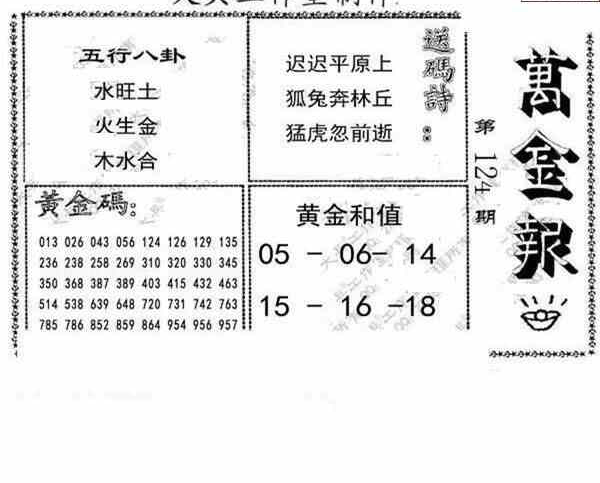 萬金報
第124期
送碼詩：
迟迟平原上
狐兔奔林丘
猛虎忽前逝
五行八卦
水旺土
火生金
木水合
黃金碼：
013 026 043 056 124 126 129 135
236 238 258 269 310 320 330 345
350 368 387 389 403 415 432 463
514 538 639 648 720 731 742 763
785 786 852 859 864 954 956 957
黄金和值
05 - 06- 14
15 - 16 -18